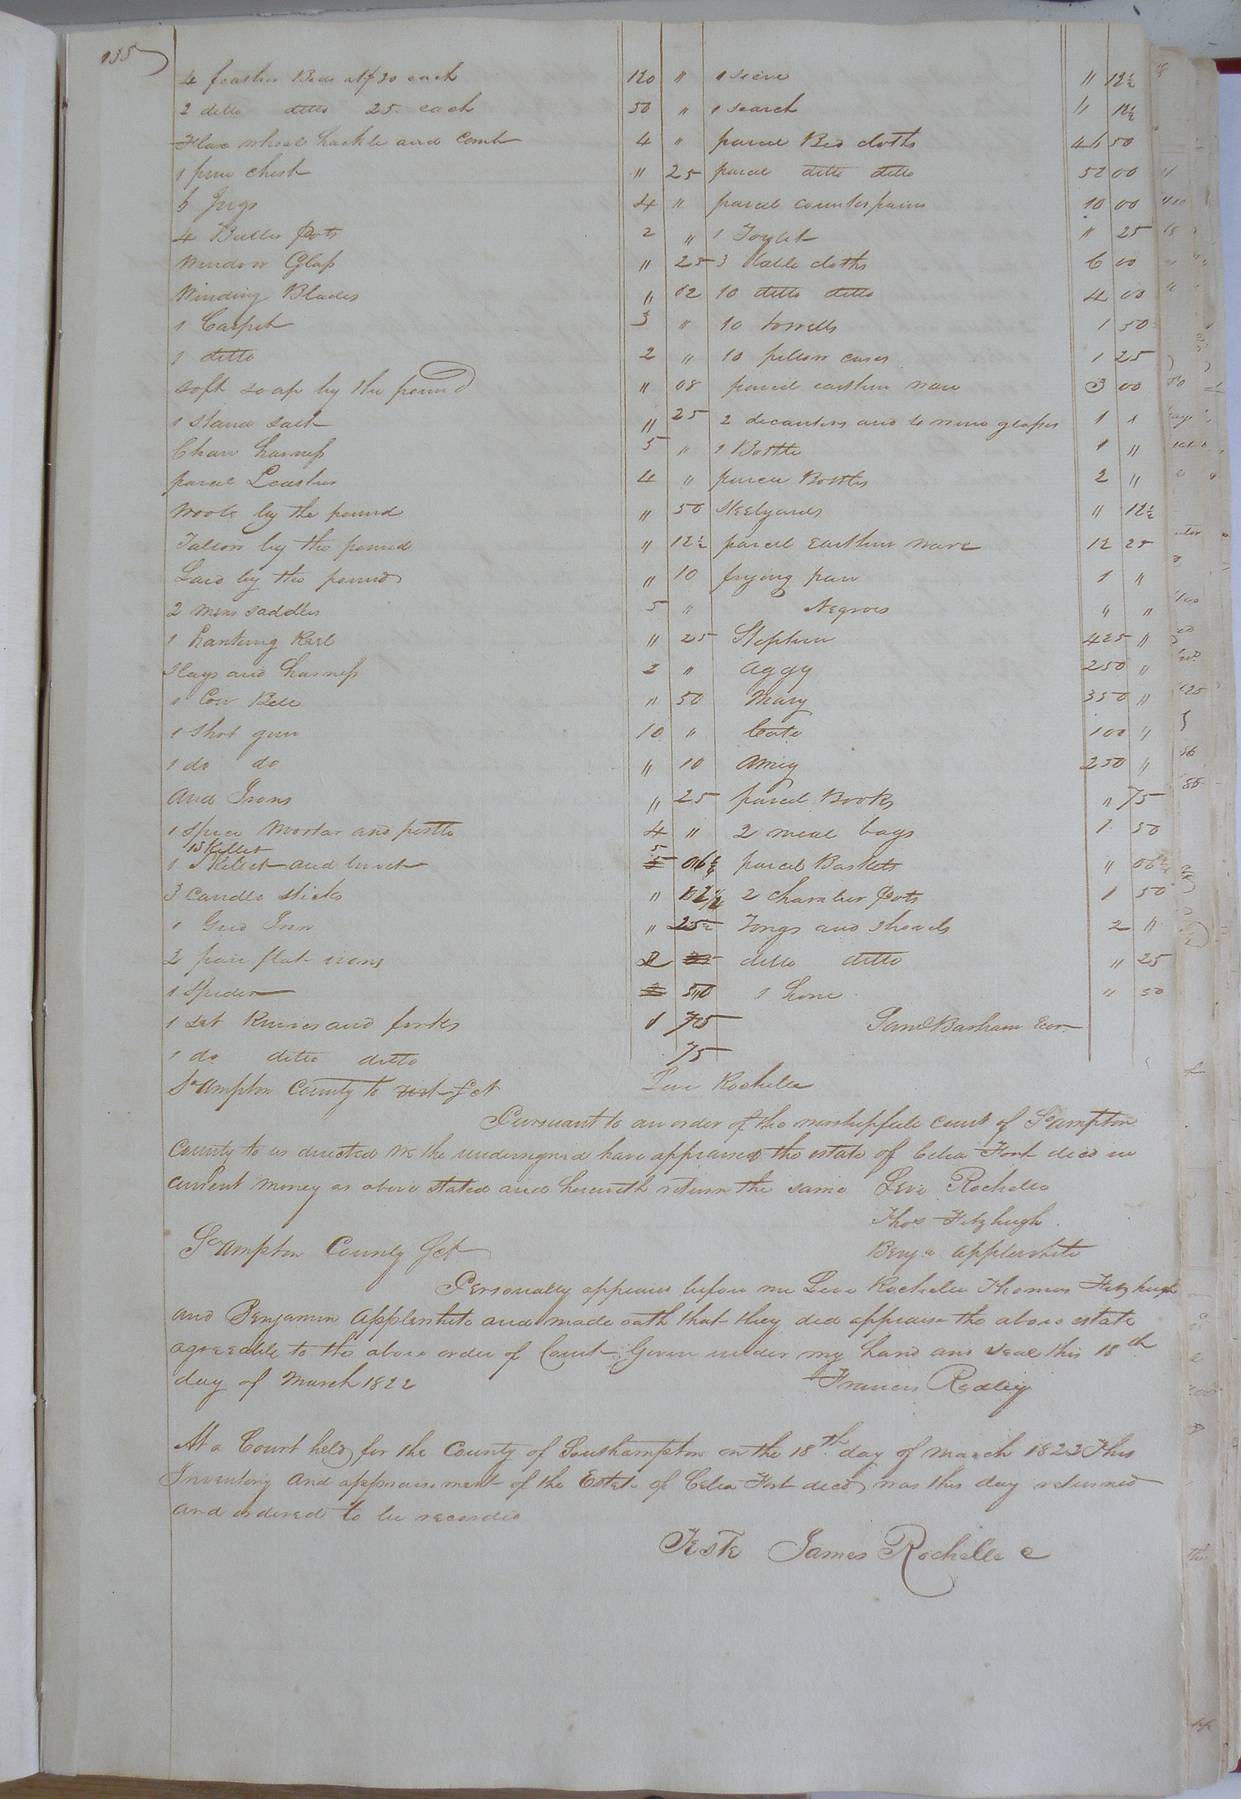 4 feather Beds at $30 each 120 "
2 ditto ditto 25 each 50 "
Flax wheel hackle and Comb 4 "
1 pine chest " 25
6 Jugs 4 "
4 Butter Pots 2 "
Window Glass " 25
Winding Blades " 02
1 Carpet 3 "
1 ditto 2 "
Soft soap by the pound " 08
1 stand salt " 25
Chair harness 5 "
parcel Leather 4 "
Wool by the pound " 50
Tallow by the pound " 12½
Lard by the pound " 10
2 mens saddles 5 "
1 Reel " 25
Slays and harness 2 "
1 Cow Bell " 50
1 Shot gun 10 "
1 do do " 10
And Irons " 25
1 spice Mortar and pestle 4 "
1 Skillet
1 Skillet and 5 06¼
3 Candle sticks "
1 Grid Iron " 25
2 pair flat irons 2
1 spider 50
1 set Knives and forks 1 75
1 do ditto ditto 75
1 sieve " 12½
1 search " 12½
parcel Bed cloths 46 50
parcel ditto ditto 52 00
parcel counterpains 10 00
1 " 25
3 table cloths 6 00
10 ditto ditto 4 00
10 towells 1 50
10 pillow cases 1 25
parcel earthen ware 3 00
2 decanters and wine glasses 1
1 Bottle 1 "
parcel Bottles 2 "
Steelyards " 12½
parcel Earthen ware 12 25
frying pan 1 "
Negroes " "
Stephen 425 "
Aggy 250 "
Mary 350 "
Cate 100 "
Amey 250 "
parcel Books " 75
2 meal bags 1 50
parcel Baskets " 06¼
2 chamber Pots 1 50
Tongs and shovels 2 "
ditto ditto " 25
1 hone " 50
Saml Barham Exor
So ampton County to Sct Levi Rochelle
Pursuant to an order of the worshipfull court of So ampton
County to us directed we the undersigned have appraised the estate of Celia Fort decd in
current money as above stated and herewith return the same Levi Rochelle
Thos Fitzhugh
Benja Applewhite
So ampton County Sct
Personally appeared before me Levi Rochelle Thomas Fitzhugh
and Benjamin Applewhite and made oath that they did appraise the above estate
agreeable to the above order of Court Given under my hand and seal this 18th
day of March 1822 Francis Ridley
At a Court held for the County of Southampton on the 18th day of March 1822 This
Inventory and appraisement of the Estate of Celia Fort decd was this day returned
and ordered to be recorded
Teste James Rochelle c